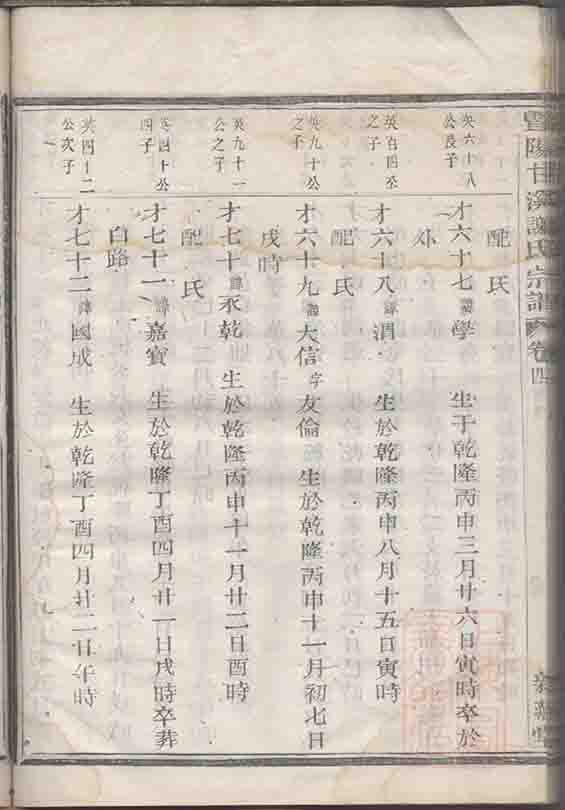 暨陽甘溪謝氏宗譜 卷四
配 氏
英六十八
公長子
才六十七 諱學 生于乾隆丙申三月廿六日寅時卒於
外
英百四公
之子
才六十八 諱渭 生於乾隆丙申八月十五日寅時
配 氏
英九十公
之子
才六十九 諱大信 字友倫 生於乾隆丙申十一月初七日
戌時
英九十一
公之子
才七十 諱永乾 生於乾隆丙申十一月廿二日酉時
配 氏
英四十公
四子
才七十一 諱嘉寶 生於乾隆丁酉四月廿一日戌時卒葬
白路
英四十二
公次子
才七十二 諱國成 生於乾隆丁酉四月廿二日午時